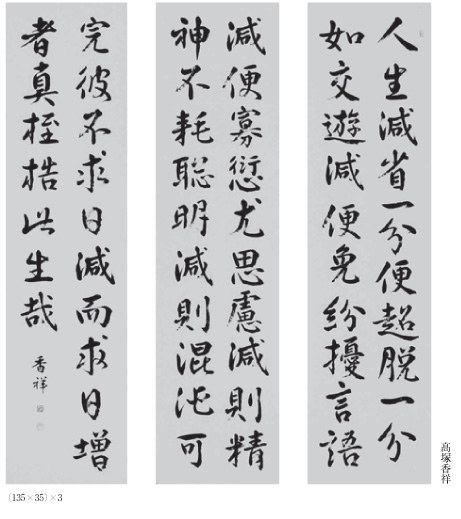 人生減省一分便超脱一分
如交遊減便免紛擾言語
減便寡愆尤思慮減則精
神不耗聡明減則混沌可
完彼不求日減而求日増
者真桎梏此生哉
香祥
高塚香祥
(135×35)×3